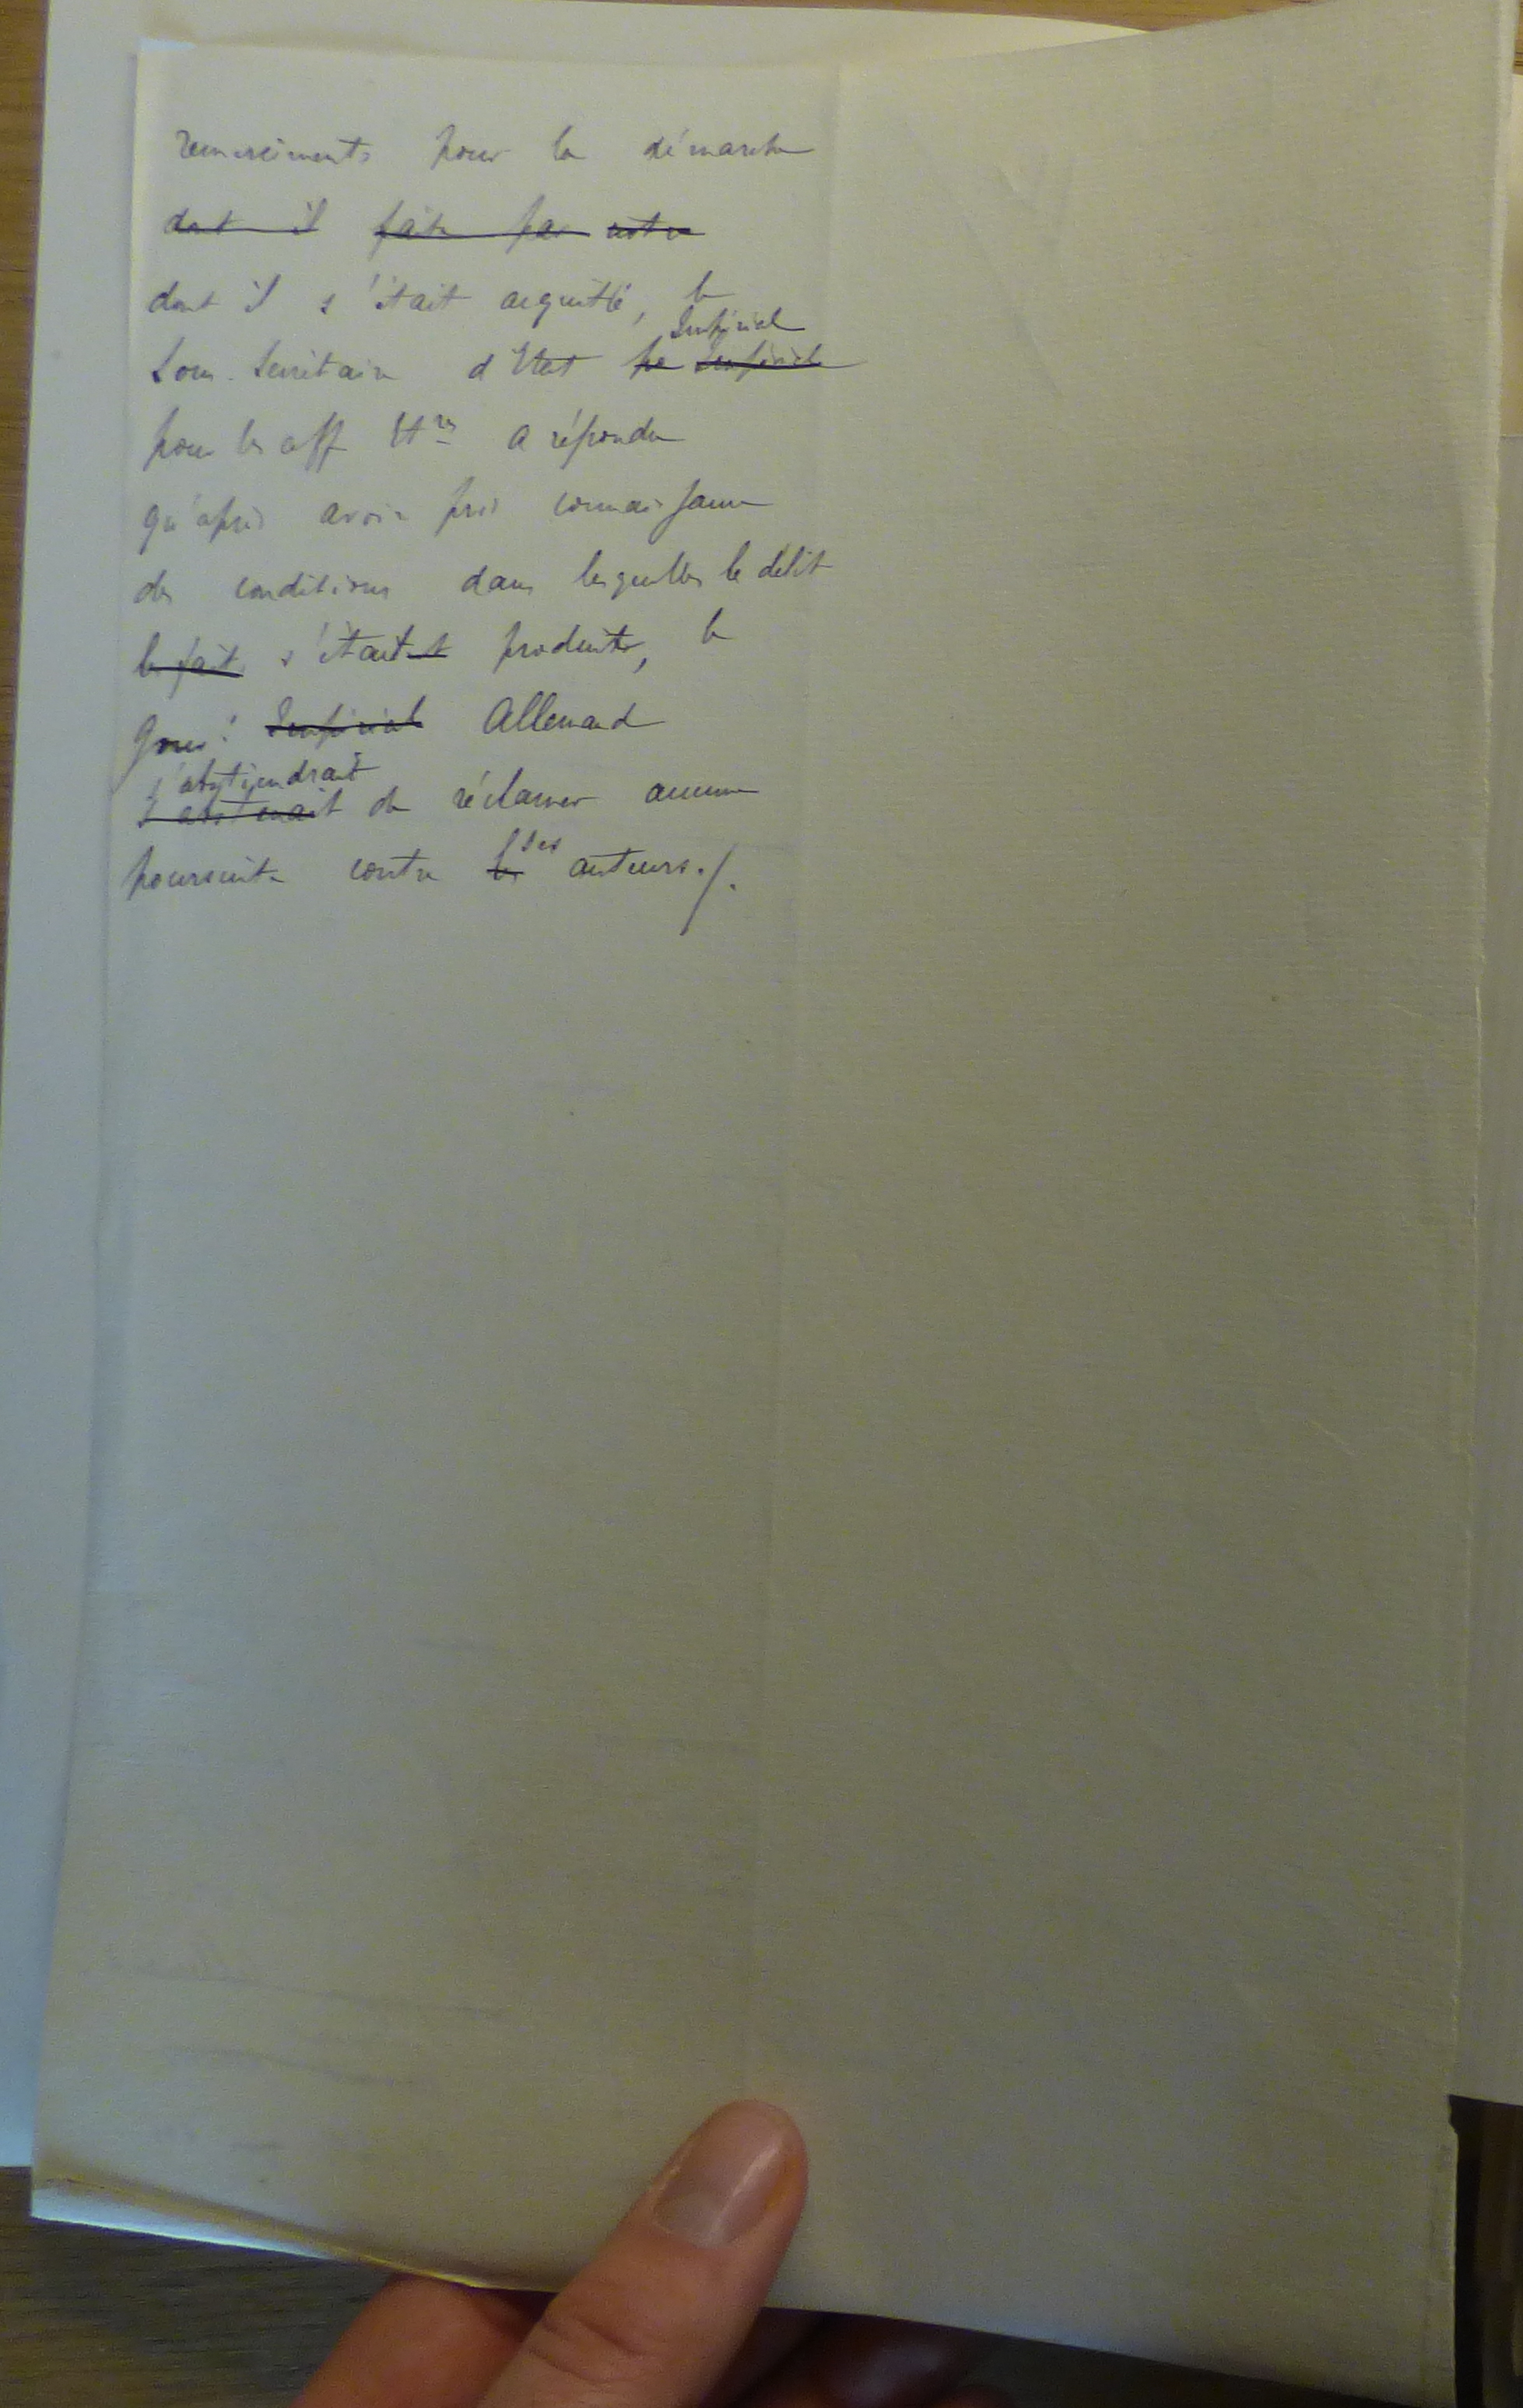 remerciments pour la démarche
dont il fait par notre
dont il s'était acquitté, le
Impérial
Sous-Secrétaire d'Etat pe Impérial
pour les aff Etres a répondu
qu'après avoir pris connaissance
des conditions dans lesquelles le délit
les faits s'étaient produits, le
Gouvt Impérial Allemand
s'abstiendrait
s'abstenait de réclamer aucune
poursuite contre les ses auteurs./.